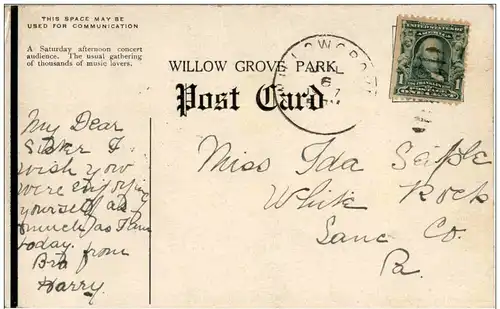 THIS SPACE MAY BE
USED FOR COMMUNICATION
A Saturday afternoon concert
audience. The usual gathering
of thousands of music lovers.
WILLOW GROVE PARK
Post Card
My Dear
Sister I
wish you
were enjoying
yourself as
much as I am
today.
from
Bro
Harry.
Miss Ida Seiple
White Rock
Lanc Co.
Pa.